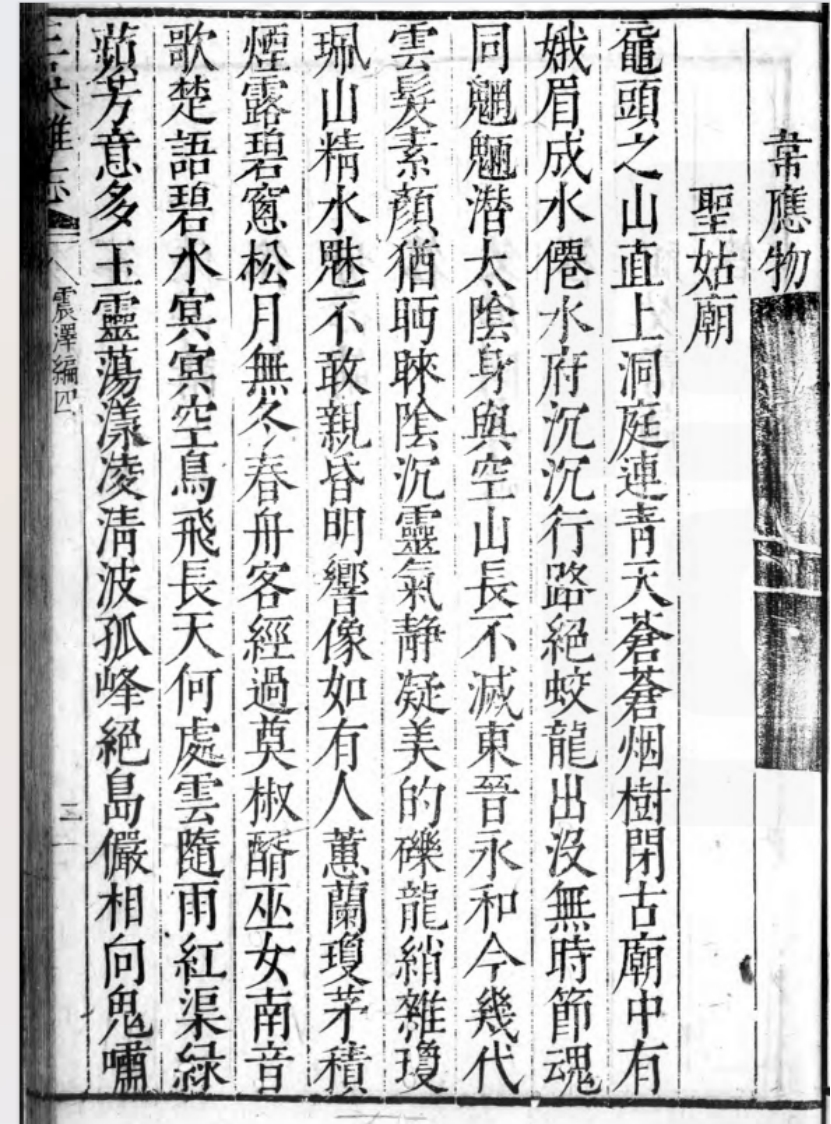 韋應物
聖姑廟
黿頭之山直上洞庭連青天蒼蒼烟樹閉古廟中有
娥眉成水僊水府沉沉行路絕蛟龍出沒無時節魂
同魍魎潛太陰身與空山長不滅東晉永和今幾代
雲髮素顏猶眄睞陰沉靈氣靜凝美的礫龍綃雜瓊
珮山精水魅不敢親昏明響像如有人蕙蘭瓊茅積
煙露碧窻松月無冬春舟客經過奠椒醑巫女南音
歌楚語碧水冥冥空鳥飛長天何處雲隨雨紅渠綠
蘋芳意多玉靈蕩漾凌清波孤峰絕島儼相向鬼嘯
震澤編四